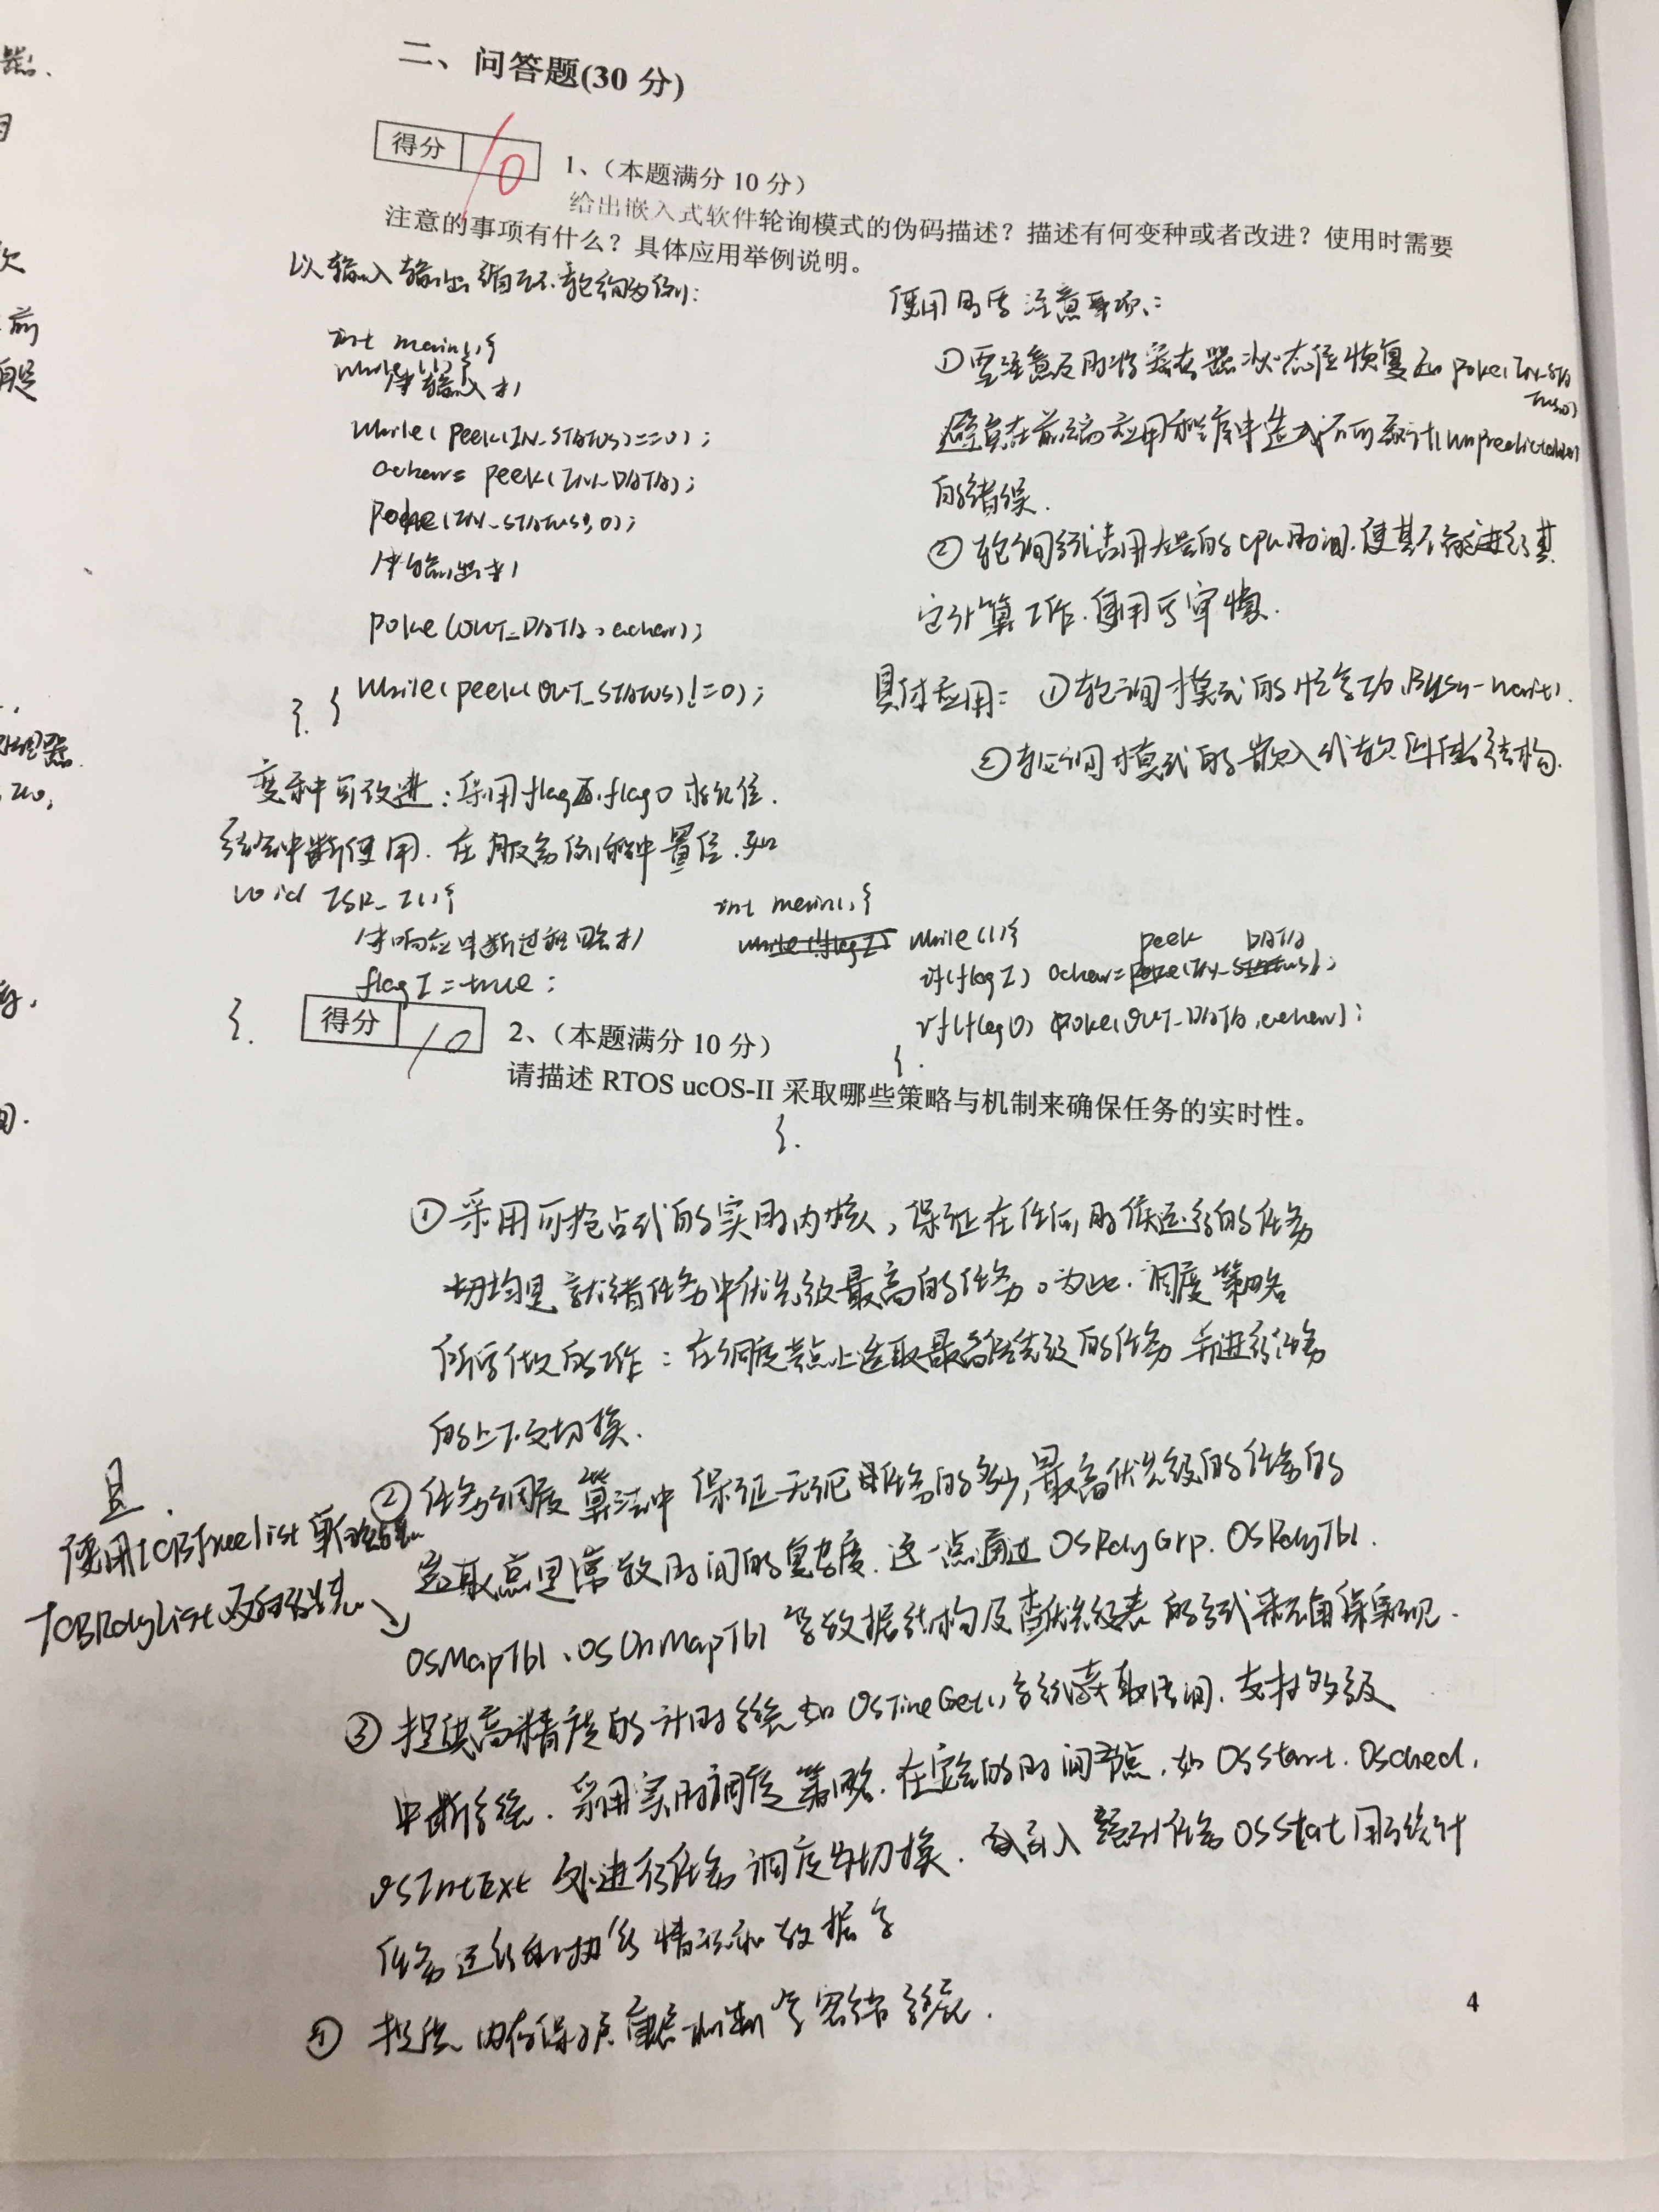 二、问答题(30 分)
得分 10
1、（本题满分 10 分）
给出嵌入式软件轮询模式的伪码描述？描述有何变种或者改进？使用时需要
注意的事项有什么？具体应用举例说明。
以输入输出循环轮询为例：
int main(){
while(1){
/*输入*/
while(peek(IN_STATUS)==0);
achar= peek(IN_DATA);
poke(IN_STATUS,0);
/*输出*/
poke(OUT_DATA,achar);
while(peek(OUT_STATUS)!=0);
}. }
变种可改进：采用flagI,flagO标记位.
结合中断使用.在服务例程中置位.如
void ISR_I(){
/*响应中断过程略*/
flagI=true;
}.
int main(){
while(1){
if(flagI) achar=peek(IN_DATA);
if(flagO) poke(OUT_DATA,achar);
}.
}.
使用时需注意事项：
①要注意及时将寄存器状态位恢复如poke(IN_STATUS,0)
避免在前端应用程序中造成不可预计(unpredictable)
的错误.
②轮询会占用大量的CPU时间.使其不能进行其
它计算工作.使用需审慎.
具体应用：①轮询模式的忙等功(Busy-wait).
②轮询模式的嵌入式软件结构.
得分 10
2、（本题满分 10 分）
请描述 RTOS ucOS-II 采取哪些策略与机制来确保任务的实时性。
①采用可抢占式的实时内核，保证在任何时候运行的任务
均是就绪任务中优先级最高的任务。为此.调度策略
所需做的工作：在调度点上选取最高优先级的任务并进行任务
的上下文切换.
②任务调度算法中保证无论任务的多少,最高优先级的任务的
选取点是常数时间的复杂度.这一点通过OSRdyGrp.OSRdyTbl.
且.
使用TCBfreelist
TCBRdyList
OSMapTbl、OSUnMapTbl等数据结构及查优先级表的方式来确保实现.
③提供高精度的计时系统如OSTimeGet()等读取时间.支持多级
中断系统.采用实时调度策略.在定的时间节点,如OSStart.OSched.
OSIntExt处进行任务调度与切换.引入任务OSStat用于统计
任务运行情况和数据等
④提供内存保护
4